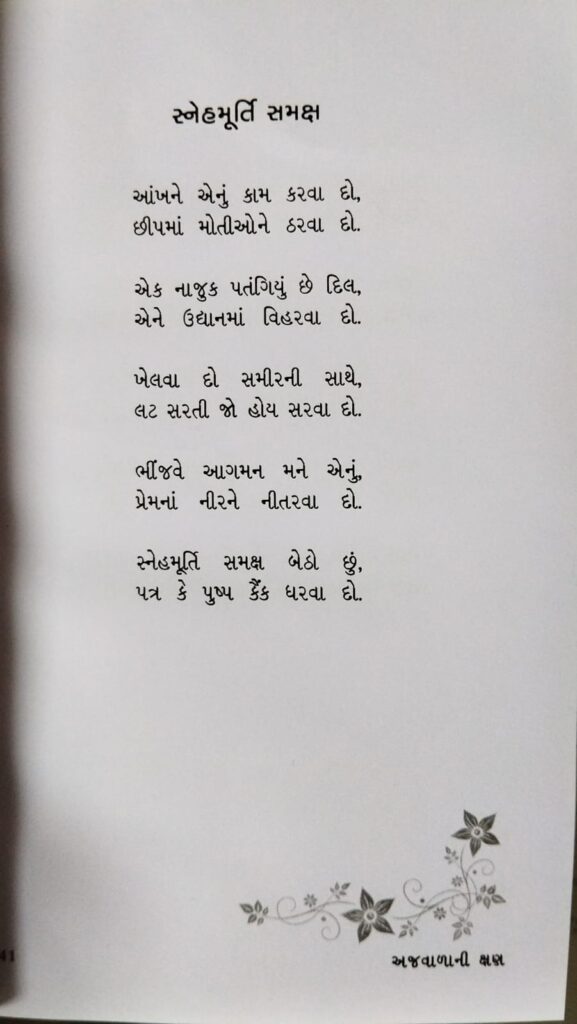 સ્નેહમૂર્તિ સમક્ષ
આંખને એનું કામ કરવા દો,
છીપમાં મોતીઓને ઠરવા દો.
એક નાજુક પતંગિયું છે દિલ,
એને ઉદ્યાનમાં વિહરવા દો.
ખેલવા દો સમીરની સાથે,
લટ સરતી જો હોય સરવા દો.
ભીંજવે આગમન મને એનું,
પ્રેમનાં નીરને નીતરવા દો.
સ્નેહમૂર્તિ સમક્ષ બેઠો છું,
પત્ર કે પુષ્પ કૈંક ધરવા દો.
41
અજવાળાની ક્ષણ